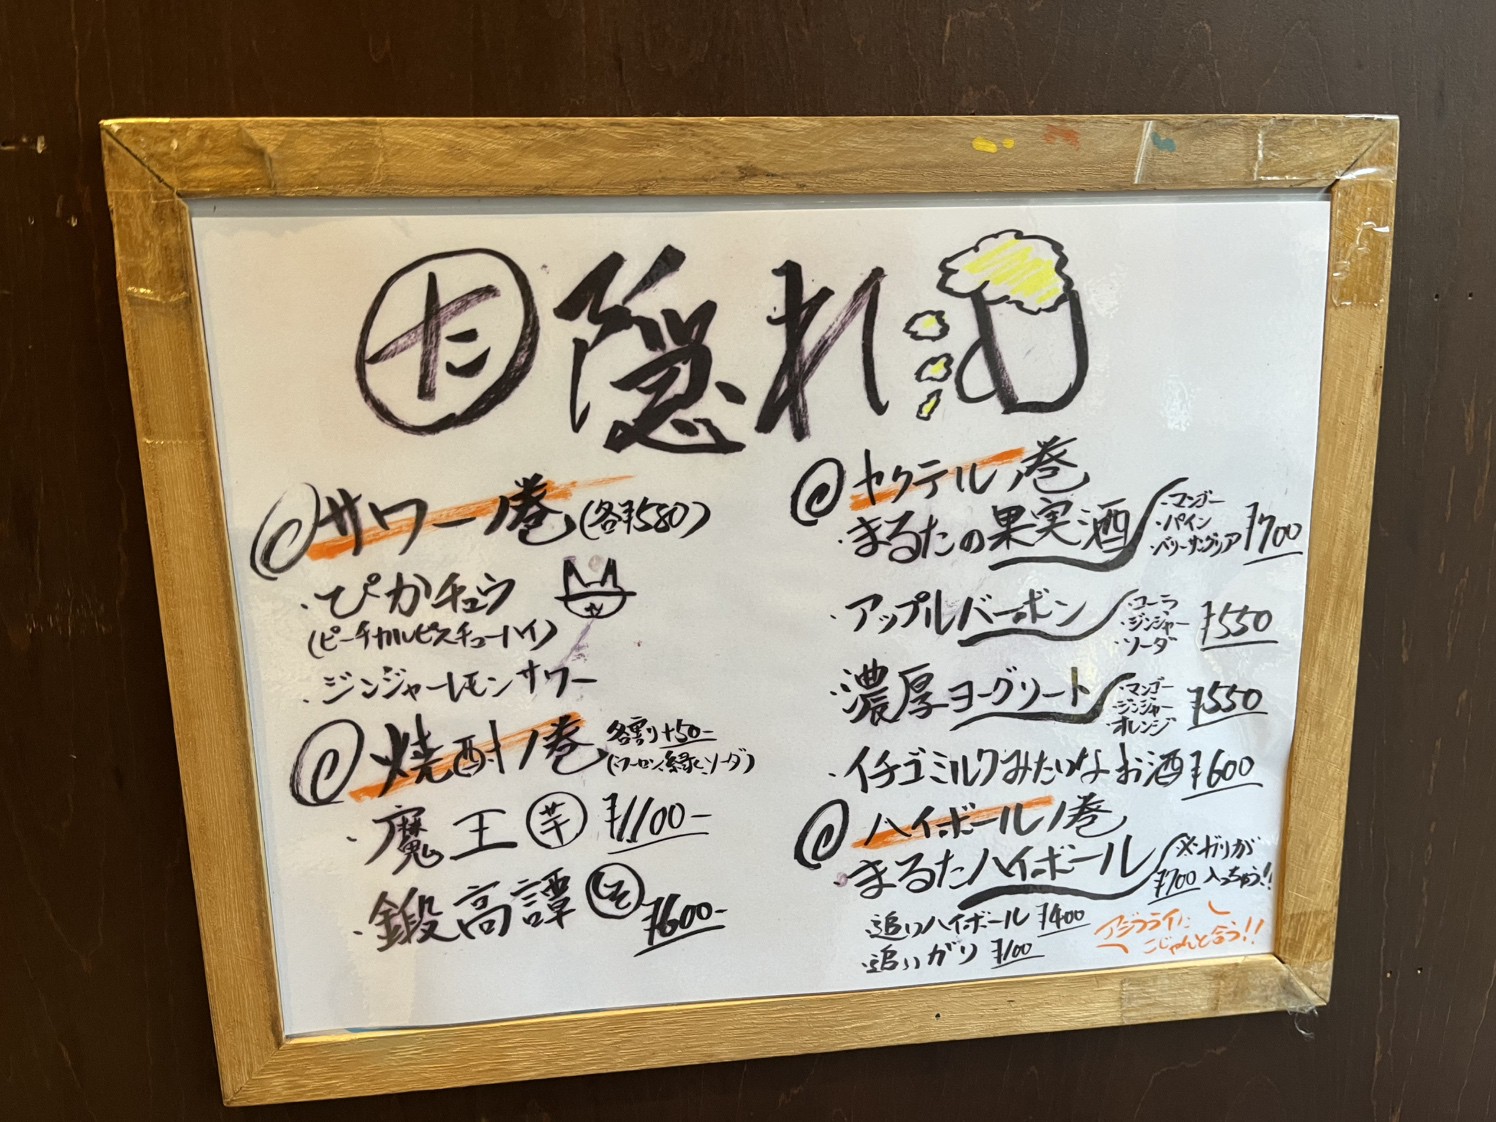 た 隠れ
サワーノ巻 (各¥580)
・ぴかチュウ
(ピーチカルピスチューハイ)
・ジンジャーレモンサワー
焼酎ノ巻 各割り+50-
(ウーロン、緑、ソーダ)
・魔王 芋 ¥1100-
・鍛高譚 しそ ¥600-
カクテルノ巻
・まるたの果実酒 ・マンゴー ・パイン ・ベリーサングリア ¥700
・アップルバーボン ・コーラ ・ジンジャー ・ソーダ ¥550
・濃厚ヨーグリート ・マンゴー ・ジンジャー ・オレンジ ¥550
・イチゴミルクみたいなお酒 ¥600
ハイボールノ巻
・まるたハイボール ¥700 ※ガリが入っちゅう!!
・追いハイボール ¥400
・追いガリ ¥100
アジフライに
こじゃんと合う!!